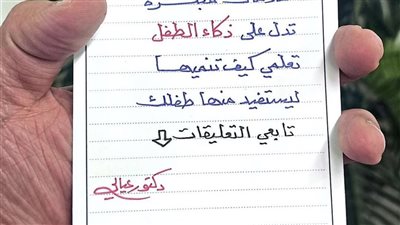 تدل على ذكاء الطفل
تعلمي كيف تنميها
ليستفيد منها طفلك
تابعي التعليقات
دكتور عيالي